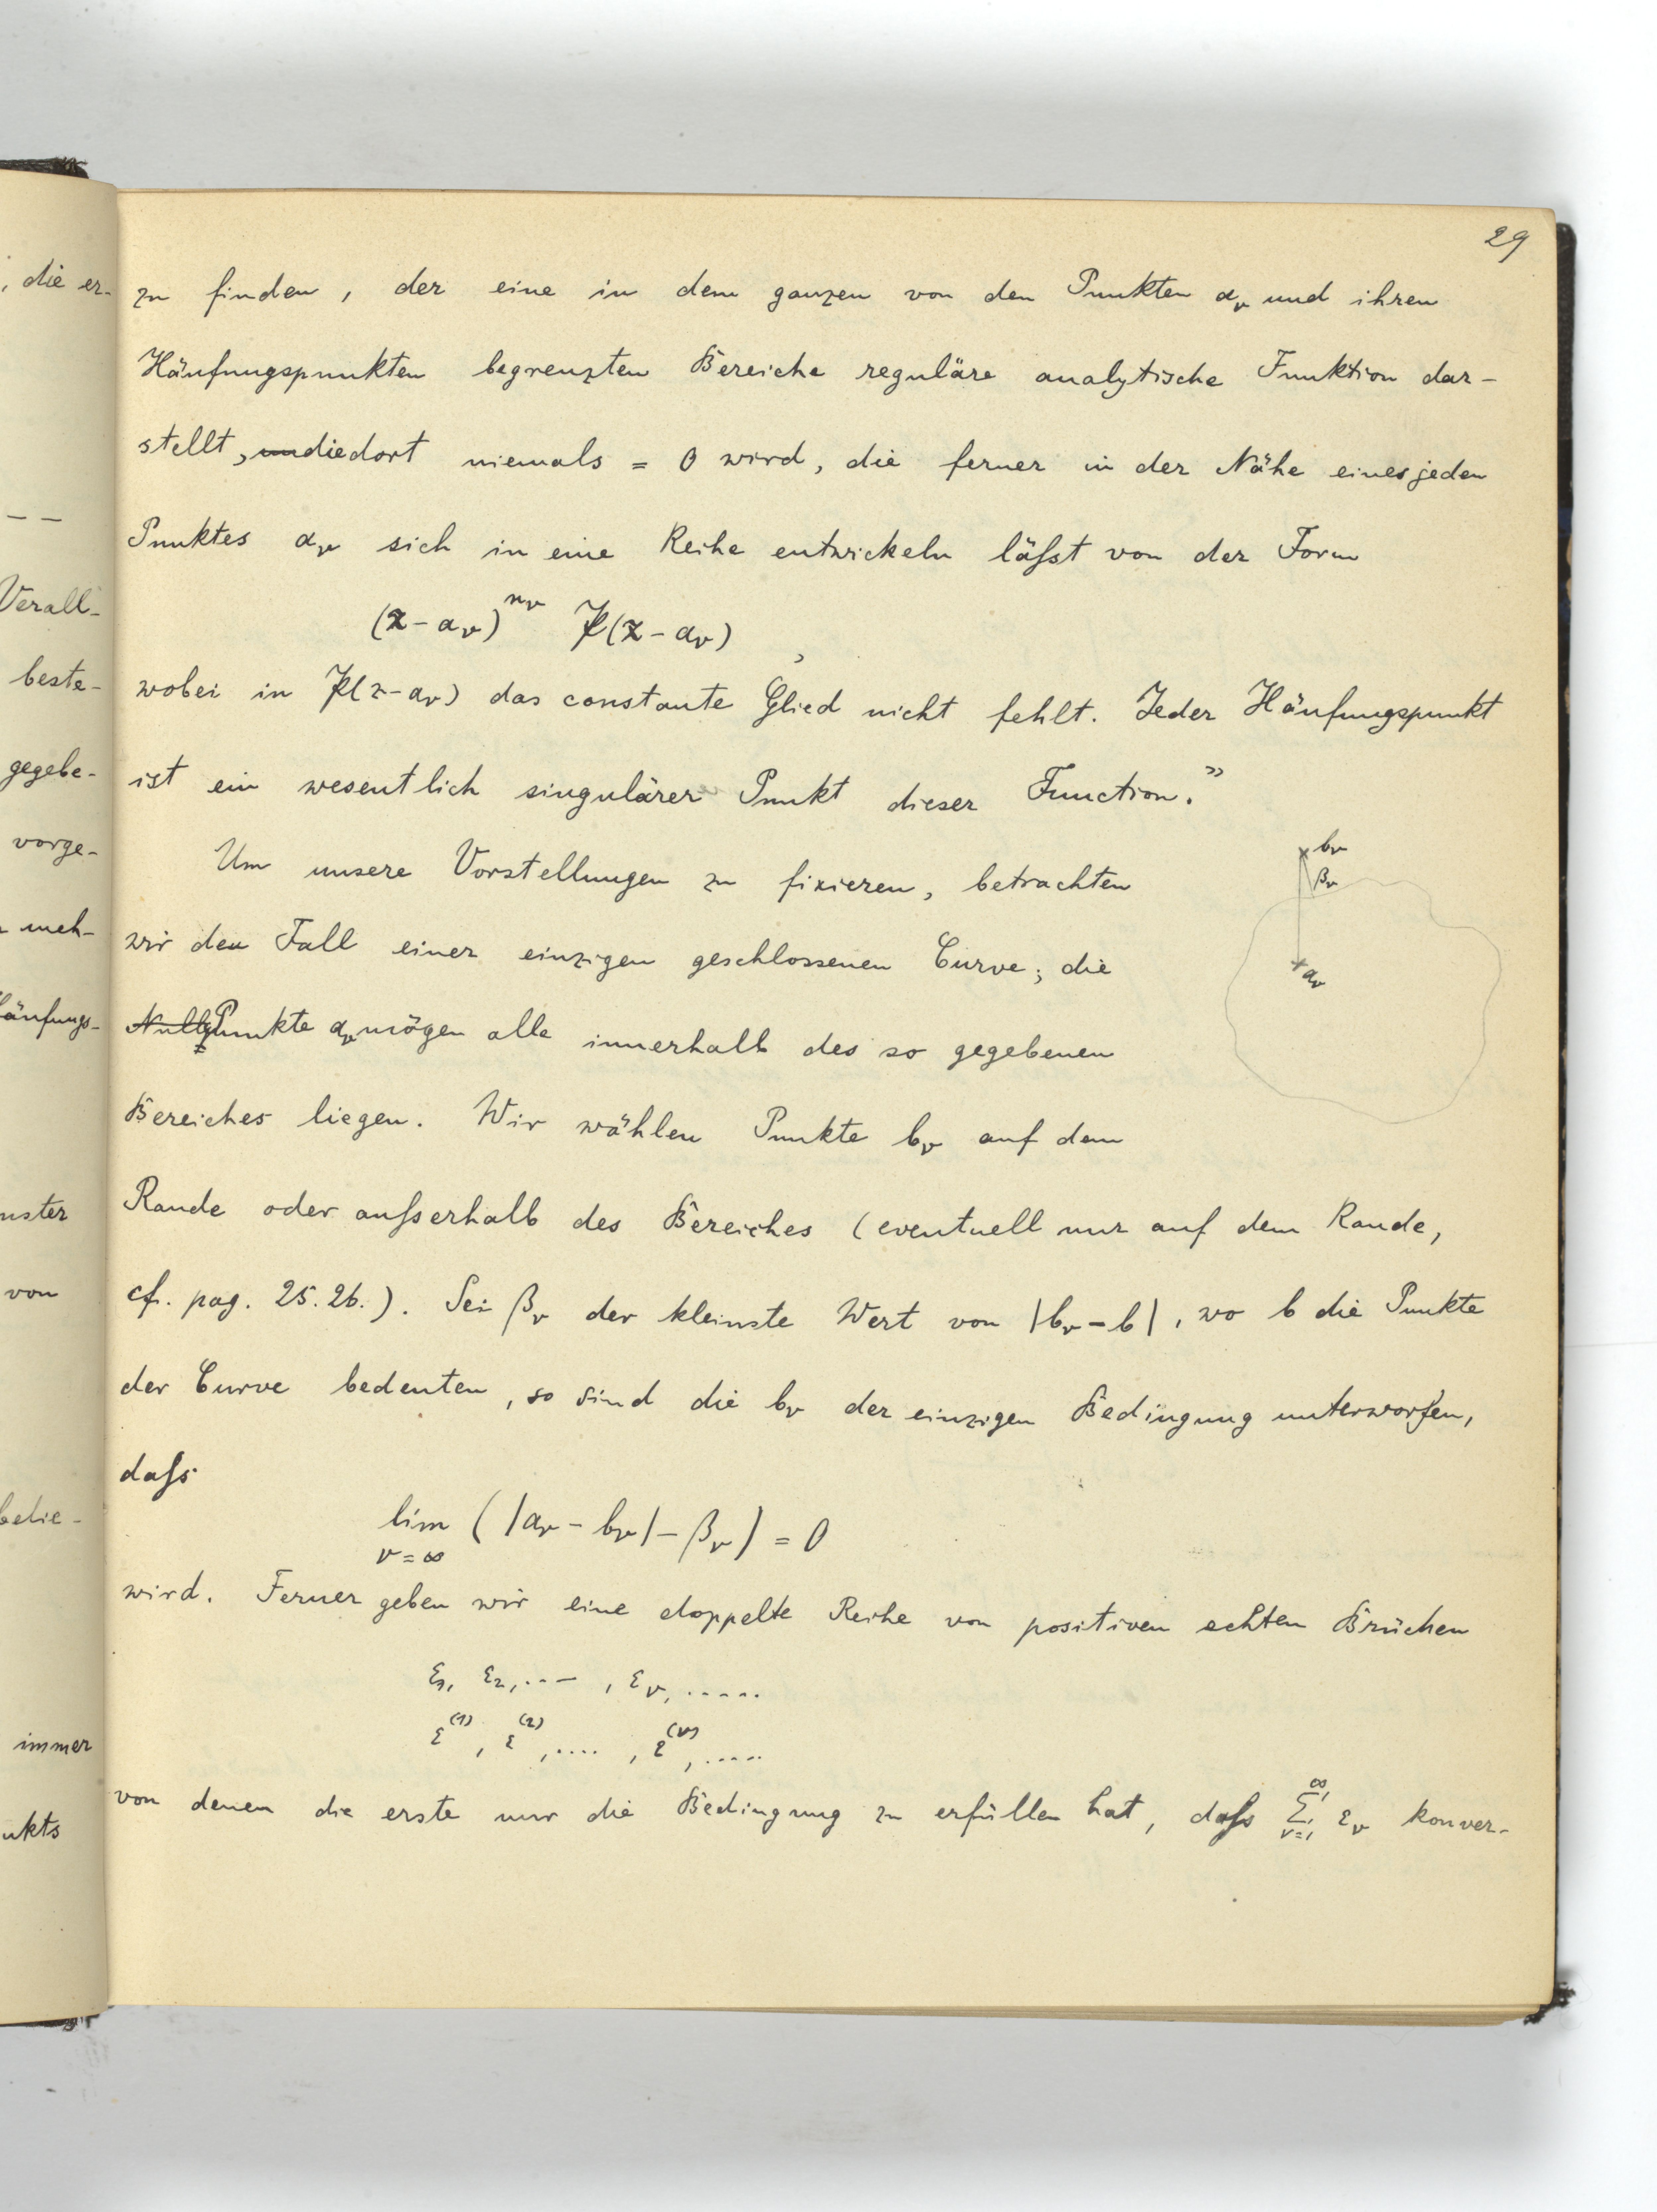 29
zu finden, der eine in dem ganzen von den Punkten a_ν und ihren
Häufungspunkten begrenzten Bereiche reguläre analytische Funktion dar-
stellt, die dort niemals = 0 wird, die ferner in der Nähe eines jeden
Punktes a_ν sich in eine Reihe entwickeln läſst von der Form
(x - a_ν)^{n_ν} 𝔓(x - a_ν),
wobei in 𝔓(x - a_ν) das constante Glied nicht fehlt. Jeder Häufungspunkt
ist ein wesentlich singulärer Punkt dieser Function."
Um unsere Vorstellungen zu fixieren, betrachten
wir den Fall einer einzigen geschlossenen Curve; die
Punkte a_ν mögen alle innerhalb des so gegebenen
Bereiches liegen. Wir wählen Punkte b_ν auf dem
Rande oder auſserhalb des Bereiches (eventuell nur auf dem Rande,
cf. pag. 25. 26.). Sei β_ν der kleinste Wert von |b_ν - b|, wo b die Punkte
der Curve bedeuten, so sind die b_ν der einzigen Bedingung unterworfen,
daſs
lim (|a_ν - b_ν| - β_ν) = 0
ν = ∞
wird. Ferner geben wir eine doppelte Reihe von positiven echten Brüchen
ε_1, ε_2, ..., ε_ν, .....
ε^{(1)}, ε^{(2)}, ...., ε^{(ν)}, .....
von denen die erste nur die Bedingung zu erfüllen hat, daſs ∑_{ν=1}^{∞} ε_ν konver-
b_ν
β_ν
a_ν
, die er-
Verall-
beste-
gegebe-
vorge-
meh-
äufungs-
nster
von
belie-
immer
nkts